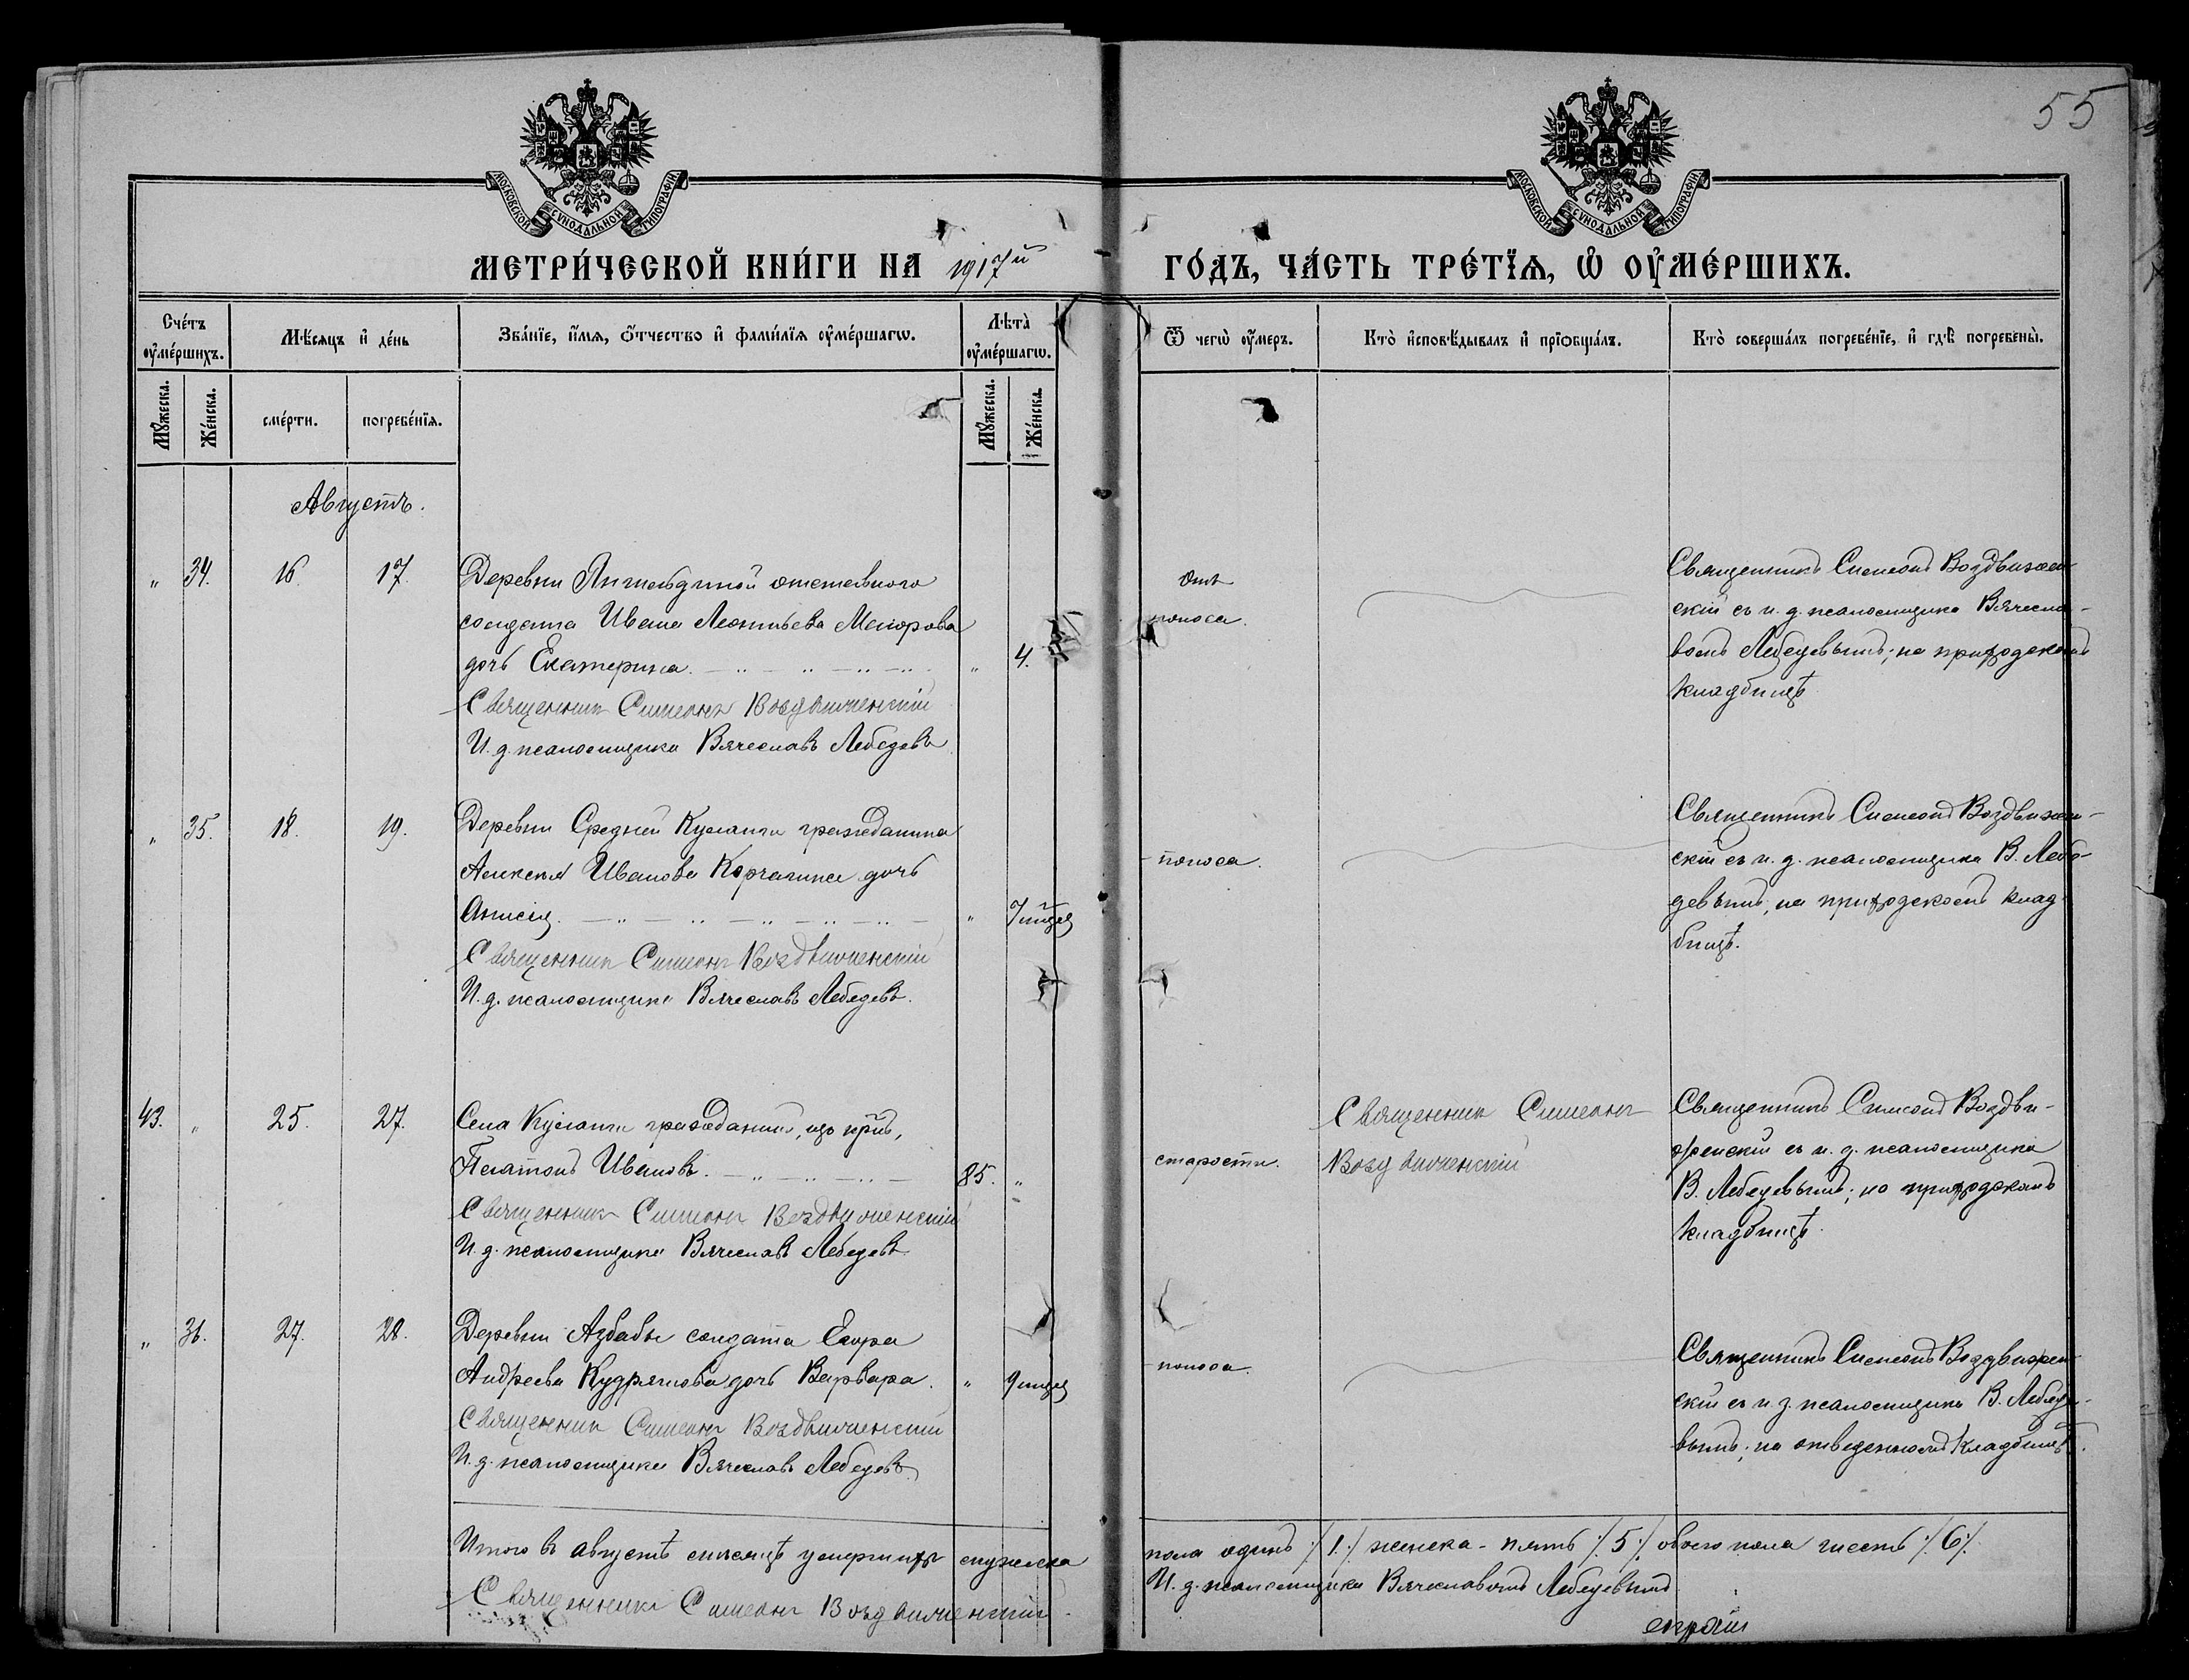 55
МОСКОВСКОЙ СѴНОДАЛЬНОЙ ТИПОГРАФІИ
МОСКОВСКОЙ СѴНОДАЛЬНОЙ ТИПОГРАФІИ
МЕТРИ́ЧЕСКОЙ КНИ́ГИ НА 1917й
ГО́ДЪ, ЧА́СТЬ ТРЕ́ТЇѦ, Ѡ҆ ОУ҆МЕ́РШИХЪ.
Сче́тъ оу҆ме́ршихъ.
Мѣ́сѧцъ и҆ де́нь
Зва́нїе, и҆́мѧ, ѻ҆́тчество и҆ фами́лїѧ оу҆ме́ршагѡ.
Лѣ́та оу҆ме́ршагѡ.
Ѿ чегѡ̀ оу҆́меръ.
Кто̀ и҆сповѣ́дывалъ и҆ прїѻбща́лъ.
Кто̀ соверша́лъ погребе́нїе, и҆ гдѣ̀ погребены̀.
Мꙋ́жеска.
Же́нска.
сме́рти.
погребе́нїѧ.
Мꙋ́жеска.
Же́нска.
Августъ.
„ 34. 16. 17.
Деревни
солдата Ивана Леонтьева Майорова
дочь Екатерина. „ 4.
Священникъ Симеонъ Воздвиженскій
И. д. псаломщика Вячеславъ Лебедевъ
Отъ
поноса.
Священникъ Симеонъ Воздвижен-
скій съ и. д. псаломщика Вячесла-
вомъ Лебедевымъ; на приходскомъ
кладбищѣ
„ 35. 18. 19.
Деревни Средней Куланги гражданина
Алексѣя Иванова Корчагина дочь
Анисія. „ 7 мцев
Священникъ Симеонъ Воздвиженскій
И. д. псаломщика Вячеславъ Лебедевъ.
поноса.
Священникъ Симеонъ Воздвижен-
скій съ и. д. псаломщика В. Лебе-
девымъ; на приходскомъ клад-
бищѣ.
43. „ 25. 27.
Села Куланги гражданинъ, изъ
Платонъ Ивановъ. 85. „
Священникъ Симеонъ Воздвиженскій
И. д. псаломщика Вячеславъ Лебедевъ
старости.
Священникъ Симеонъ
Воздвиженскій
Священникъ Симеонъ Воздви-
женскій съ и. д. псаломщика
В. Лебедевымъ; на приходскомъ
кладбищѣ.
„ 36. 27. 28.
Деревни Азбабы солдата Егора
Андреева Кудряшова дочь Варвара. „ 9 мцев
Священникъ Симеонъ Воздвиженскій
И. д. псаломщика Вячеславъ Лебедевъ
поноса.
Священникъ Симеонъ Воздвижен-
скій съ и. д. псаломщика В. Лебеде-
вымъ; на отведенномъ кладбищѣ.
Итого въ августѣ мѣсяцѣ умершихъ мужеска пола одинъ /1./ женска - пять /.5./ обоего пола шесть /.6./.
Священникъ Симеонъ Воздвиженскій
И. д. псаломщика Вячеславомъ Лебедевымъ